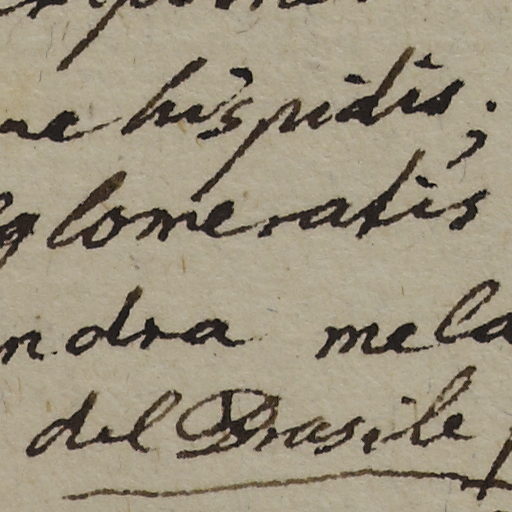 hispidis;
glomeratis
ndra mela
del Brasile